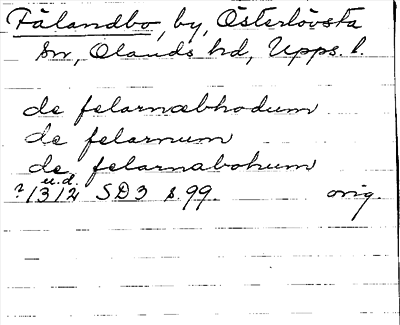 Fälandbo, by, Österlövsta
sn, Olands hd, Upps. l.
de felarnæbhodum
de felarnum
de felarnabohum
u.d.
? 1312 SD3 s. 99. orig.